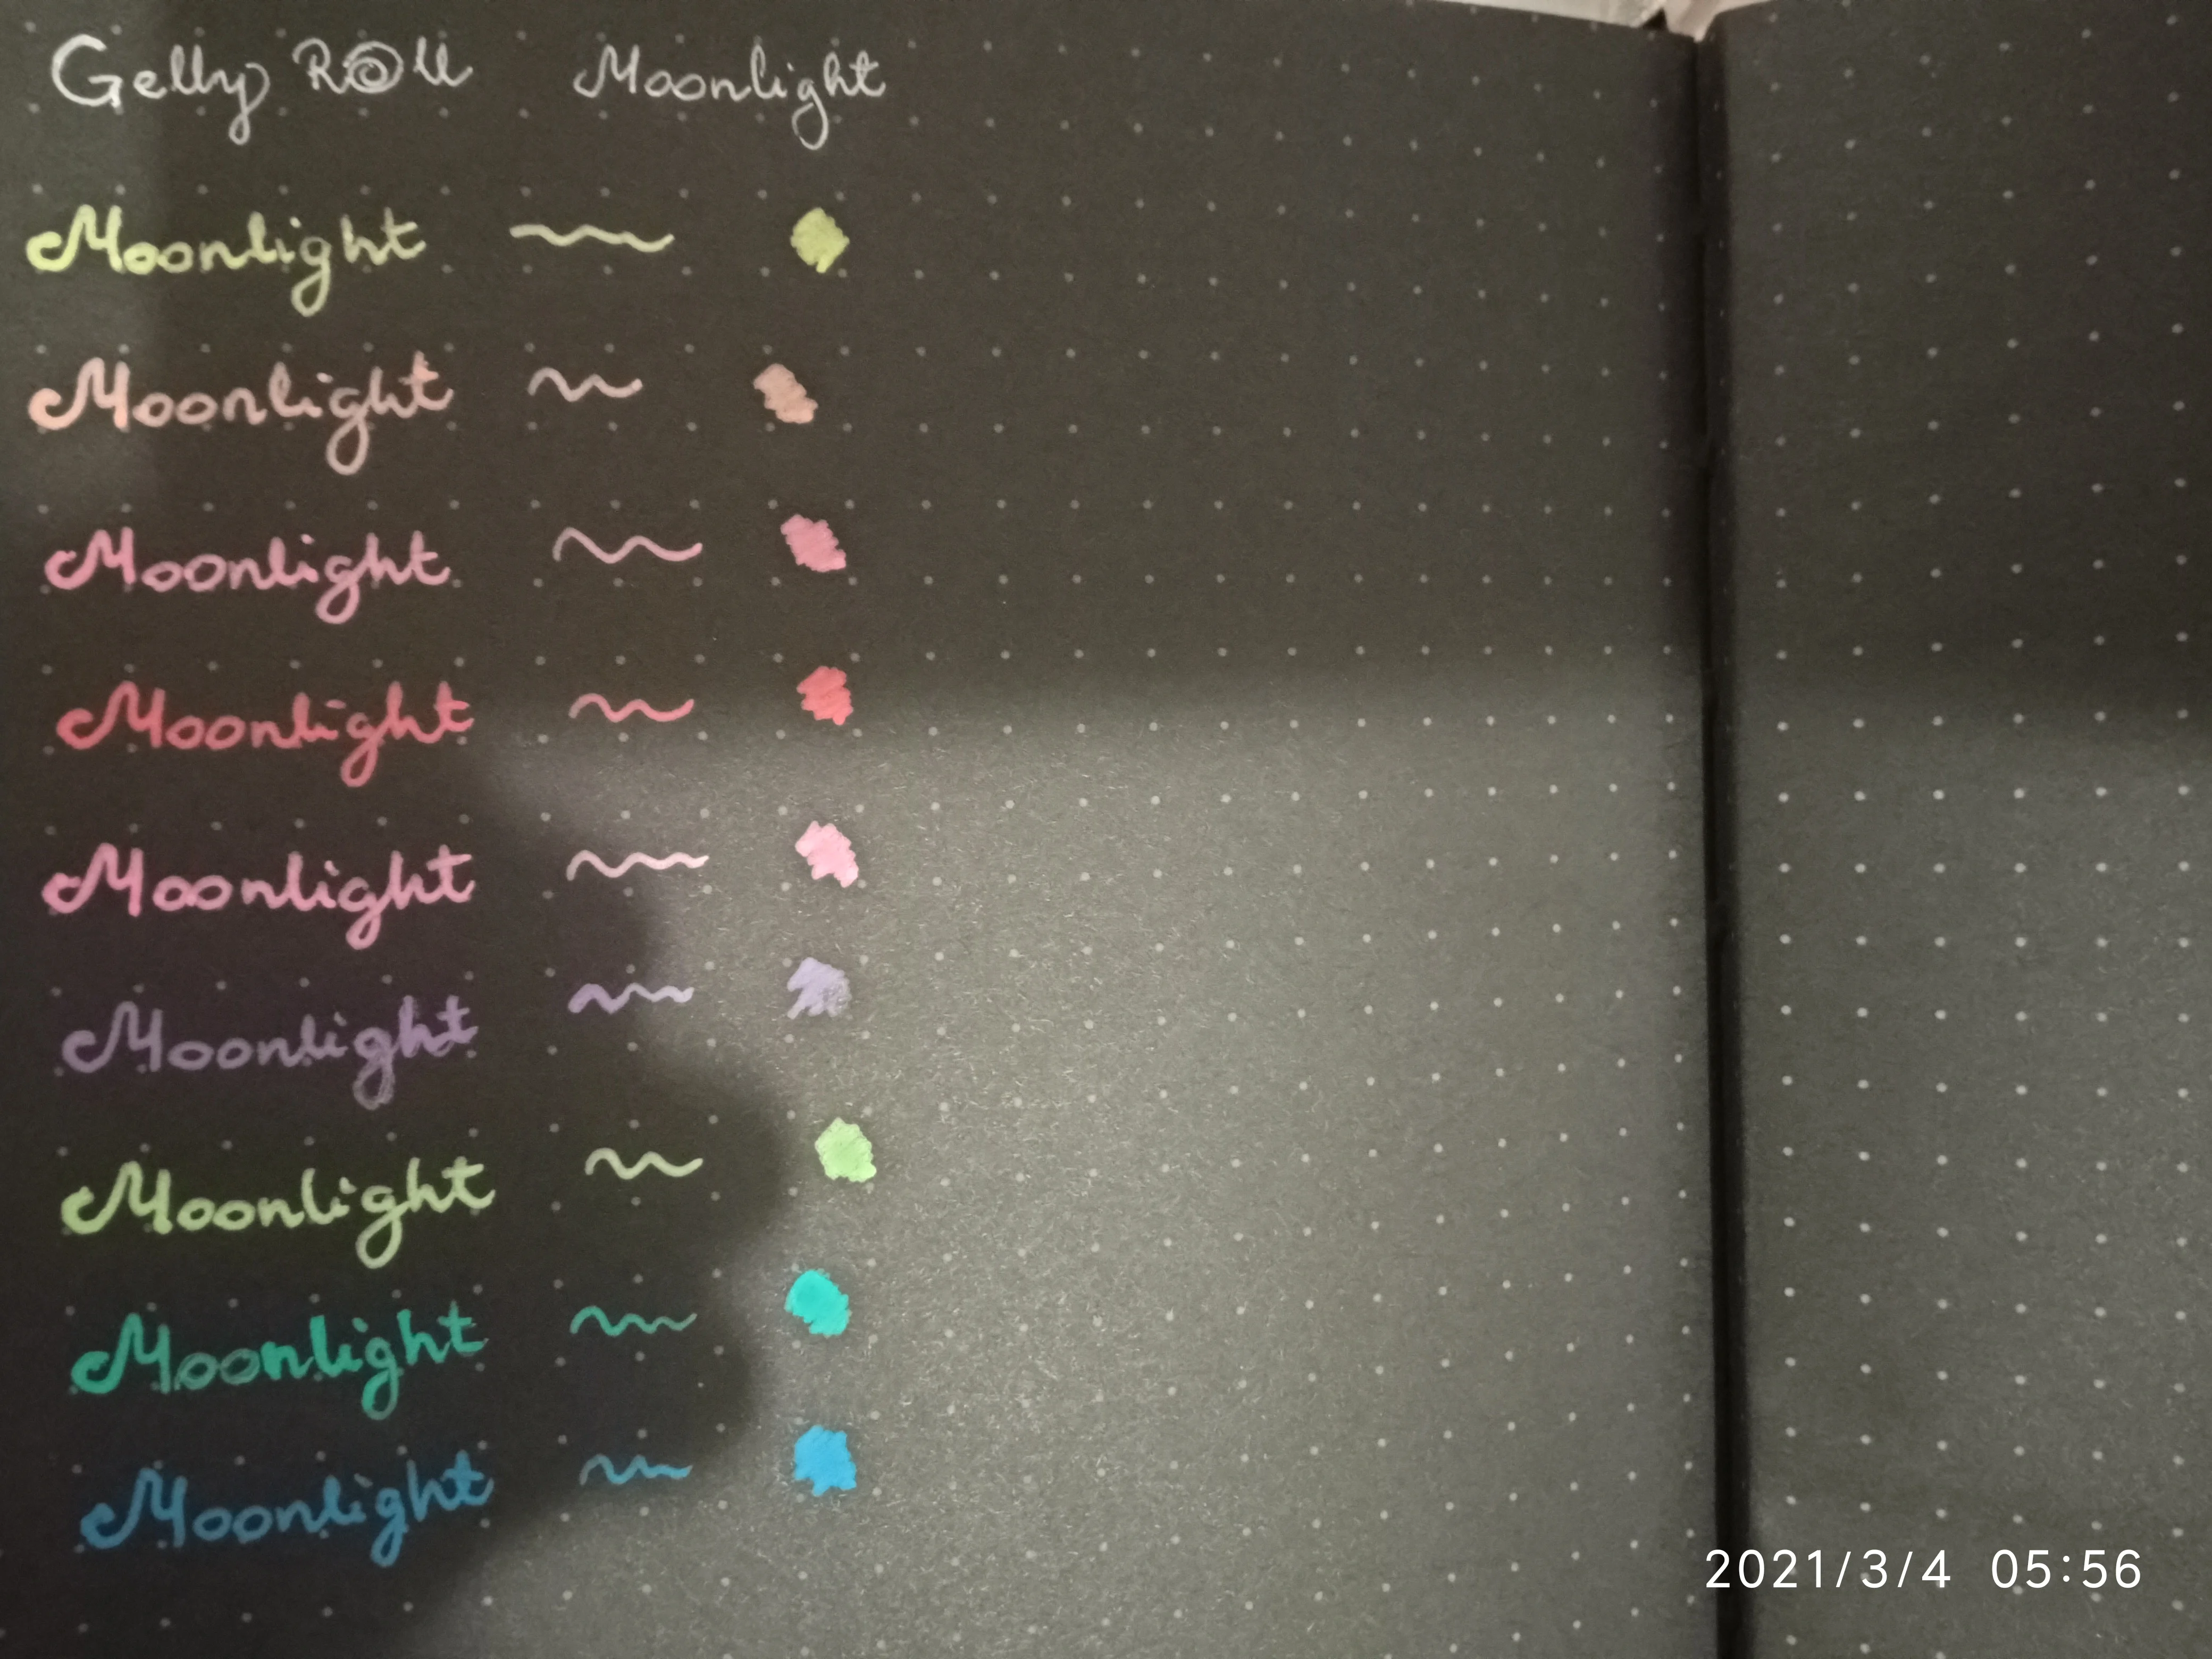 Gelly Roll Moonlight
Moonlight
Moonlight
Moonlight
Moonlight
Moonlight
Moonlight
Moonlight
Moonlight
Moonlight
2021/3/4 05:56